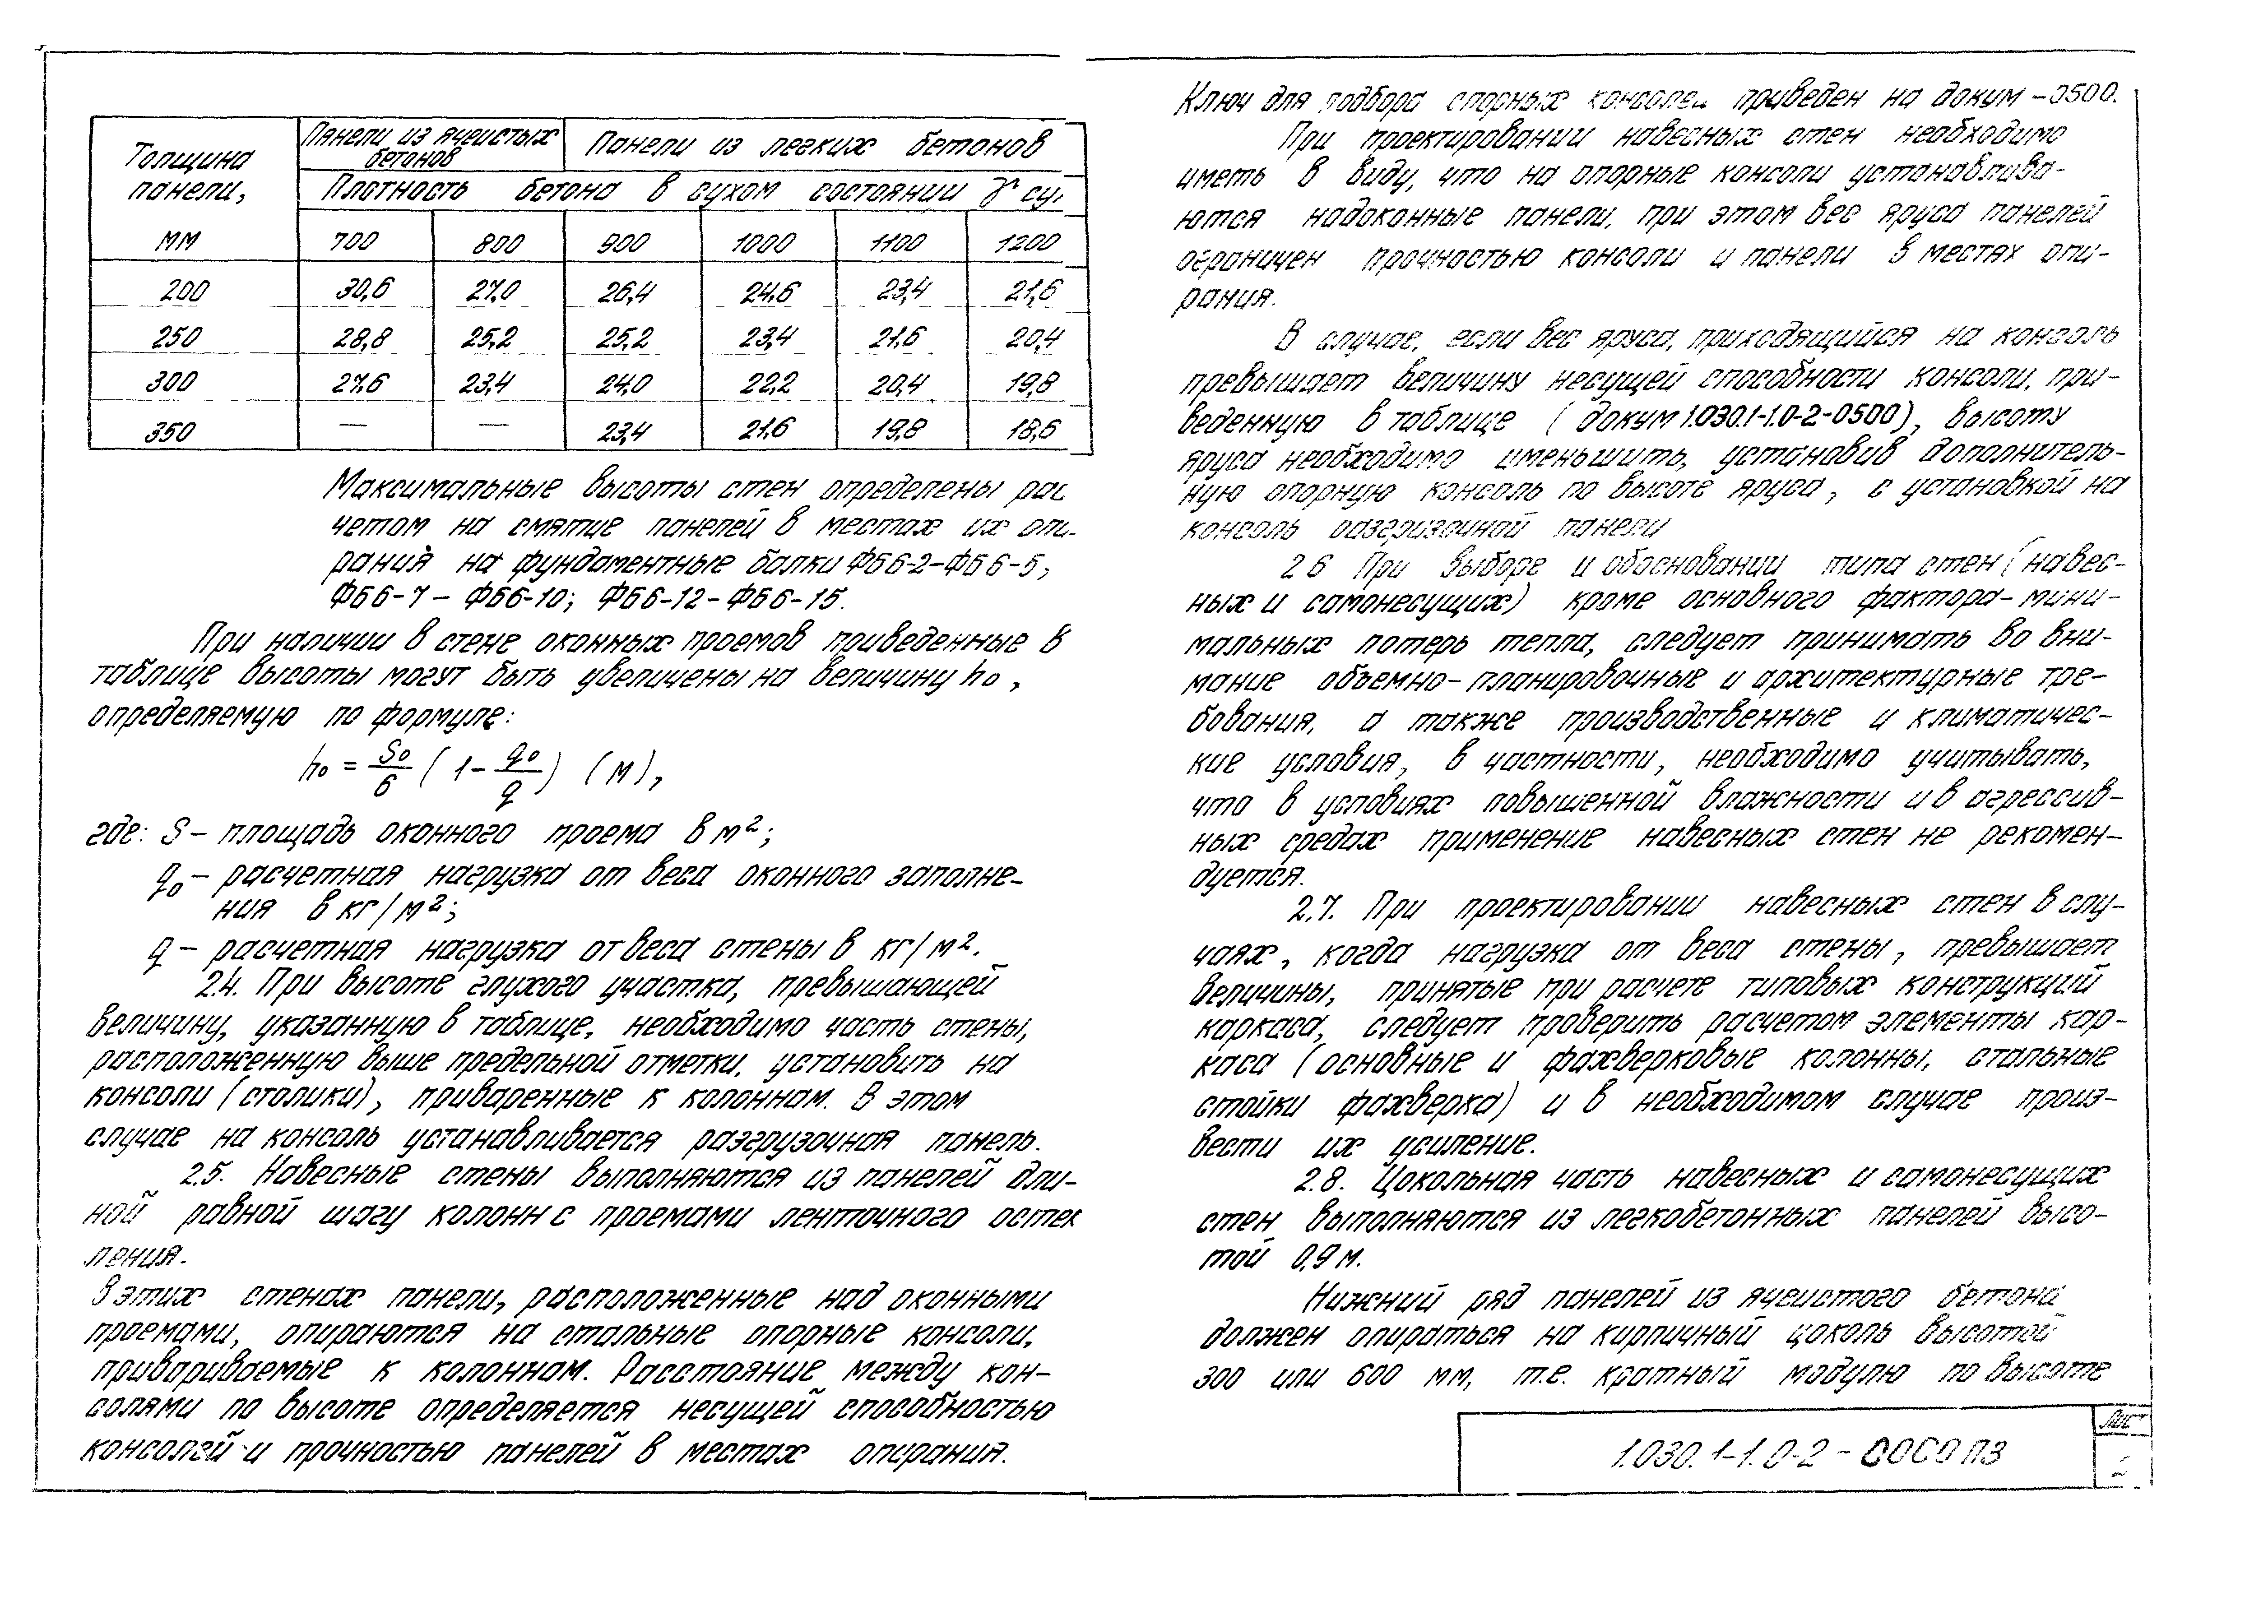 Толщина панели, мм
Панели из ячеистых бетонов
Панели из легких бетонов
Плотность бетона в сухом состоянии γ су
700 800 900 1000 1100 1200
200 30,6 27,0 26,4 24,6 23,4 21,6
250 28,8 25,2 25,2 23,4 21,6 20,4
300 27,6 23,4 24,0 22,2 20,4 19,8
350 — — 23,4 21,6 19,8 18,6
Максимальные высоты стен определены рас
четом на смятие панелей в местах их опи-
рания на фундаментные балки ФБ6-2-ФБ6-5;
ФБ6-7 - ФБ6-10; ФБ6-12-ФБ6-15.
При наличии в стене оконных проемов приведенные в
таблице высоты могут быть увеличены на величину h₀,
определяемую по формуле:
h₀ = S₀/6 (1 - q₀/q) (м),
где: S - площадь оконного проема в м²;
q₀ - расчетная нагрузка от веса оконного заполне-
ния в кг/м²;
q - расчетная нагрузка от веса стены в кг/м².
2.4. При высоте глухого участка, превышающей
величину, указанную в таблице, необходимо часть стены,
расположенную выше предельной отметки, установить на
консоли (столики), приваренные к колоннам. В этом
случае на консоль устанавливается разгрузочная панель.
2.5. Навесные стены выполняются из панелей дли-
ной равной шагу колонн с проемами ленточного остек
ления.
В этих стенах панели, расположенные над оконными
проемами, опираются на стальные опорные консоли,
привариваемые к колоннам. Расстояние между кон-
солями по высоте определяется несущей способностью
консолей и прочностью панелей в местах опирания.
Ключ для подбора опорных консолей приведен на докум -0500.
При проектировании навесных стен необходимо
иметь в виду, что на опорные консоли устанавлива-
ются надоконные панели, при этом вес яруса панелей
ограничен прочностью консоли и панели в местах опи-
рания.
В случае, если вес яруса, приходящийся на консоль
превышает величину несущей способности консоли, при-
веденную в таблице (докум 1.030.1-1.0-2-0500), высоту
яруса необходимо уменьшить, установив дополнитель-
ную опорную консоль по высоте яруса, с установкой на
консоль разгрузочной панели
2.6 При выборе и обосновании типа стен (навес-
ных и самонесущих) кроме основного фактора - мини-
мальных потерь тепла, следует принимать во вни-
мание объемно-планировочные и архитектурные тре-
бования, а также производственные и климатичес-
кие условия, в частности, необходимо учитывать,
что в условиях повышенной влажности и в агрессив-
ных средах применение навесных стен не рекомен-
дуется.
2.7. При проектировании навесных стен в слу-
чаях, когда нагрузка от веса стены, превышает
величины, принятые при расчете типовых конструкций
каркаса, следует проверить расчетом элементы кар-
каса (основные и фахверковые колонны, стальные
стойки фахверка) и в необходимом случае произ-
вести их усиление.
2.8. Цокольная часть навесных и самонесущих
стен выполняются из легкобетонных панелей высо-
той 0,9 м.
Нижний ряд панелей из ячеистого бетона
должен опираться на кирпичный цоколь высотой
300 или 600 мм, т.е. кратный модулю по высоте
1.030.1-1.0-2-00С0 ПЗ
Лист
2